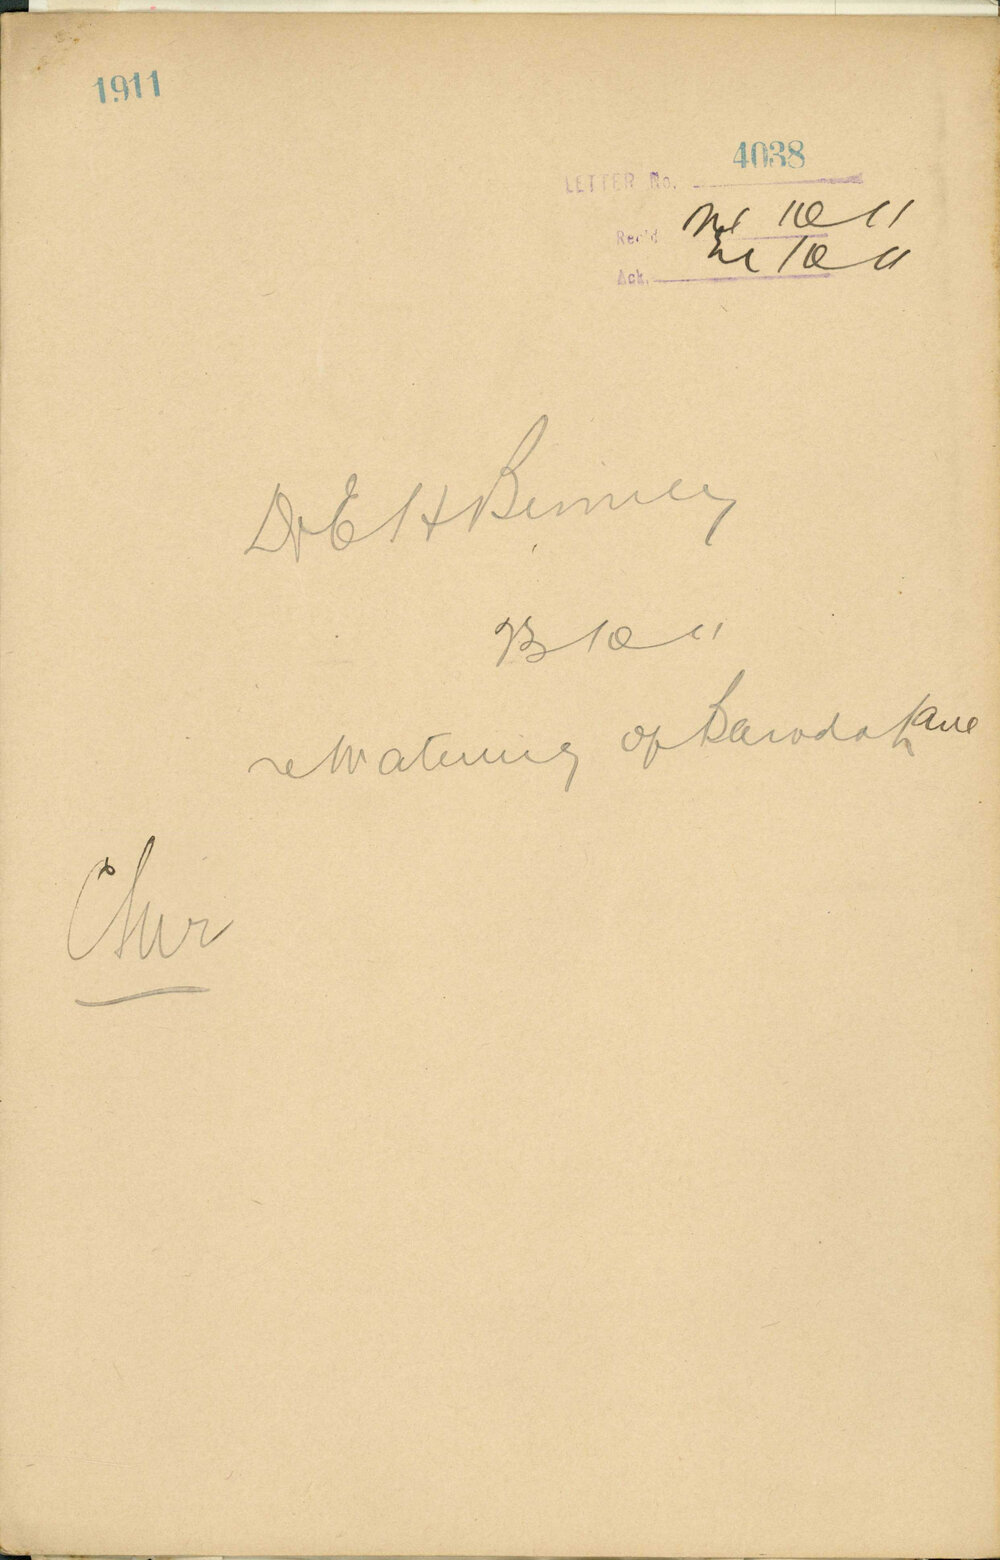 1911
4038
LETTER No.
Rec'd 24 10 11
Ack. 24 10 11
Dr E H Binney
23 10 11
re Watering of Baroda Lane